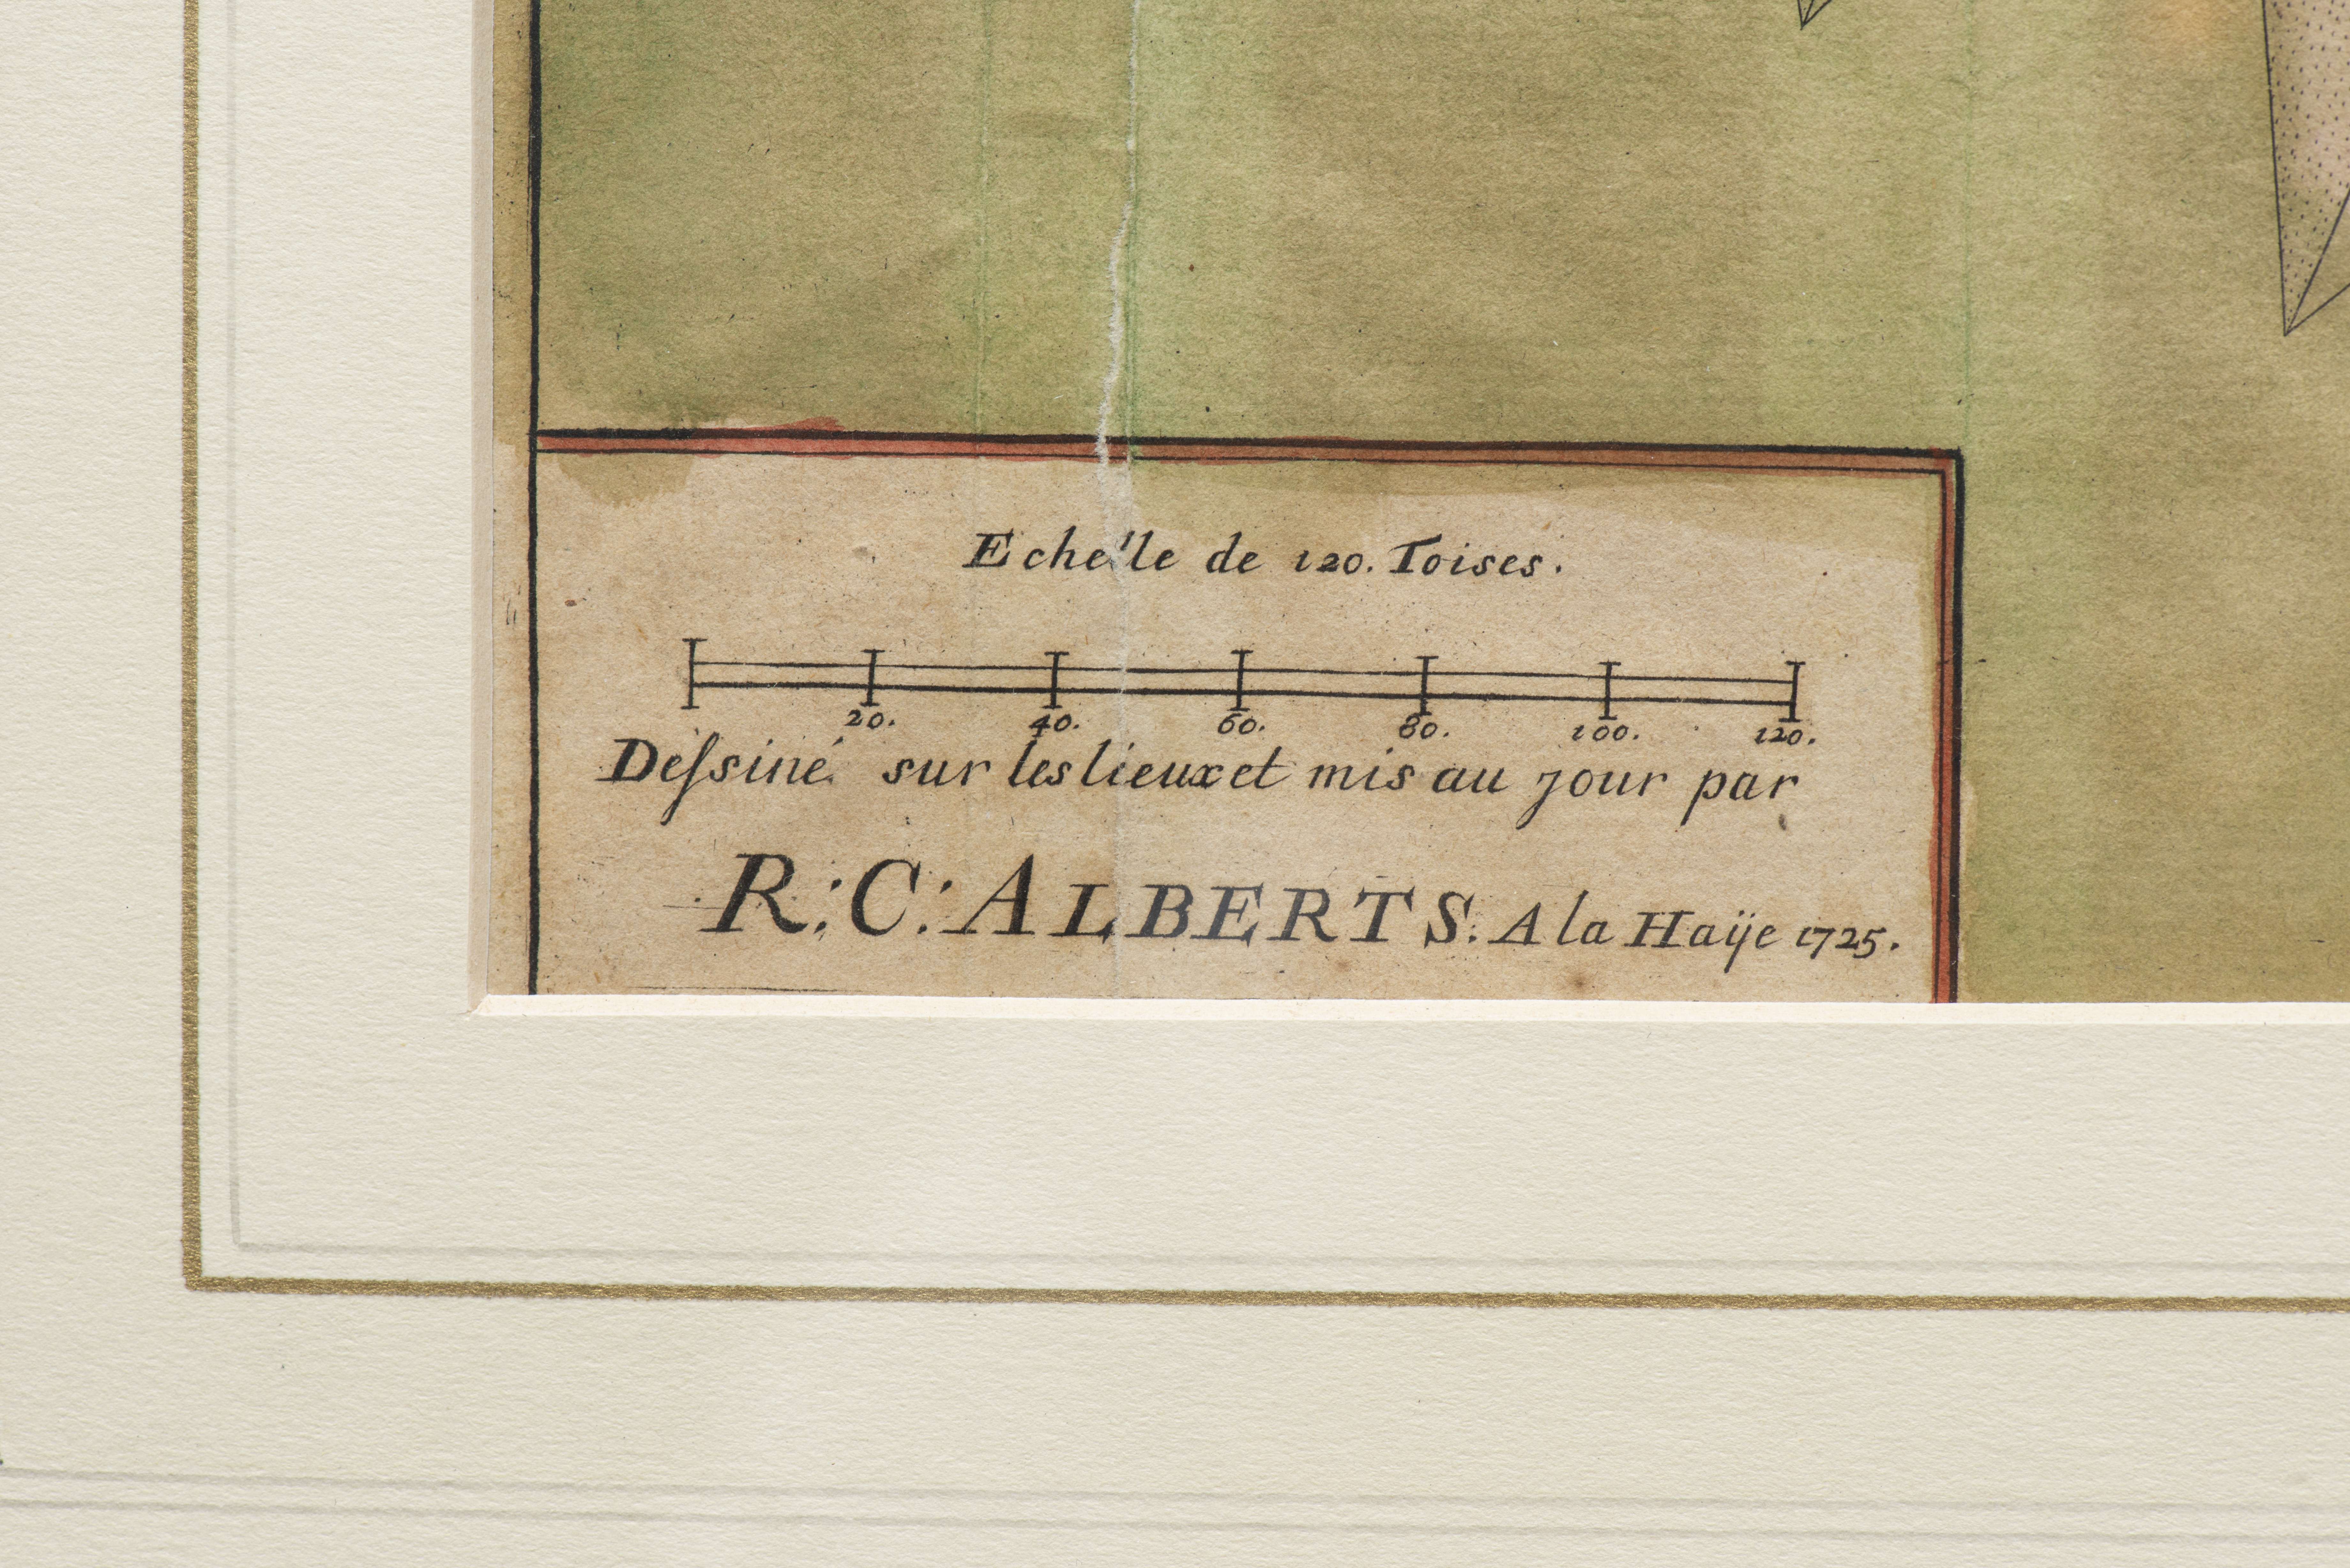 Echelle de 120. Toises.
20. 40. 60. 80. 100. 120.
Deſsiné sur les lieux et mis au jour par
R: C: ALBERTS. A la Haÿe 1725.